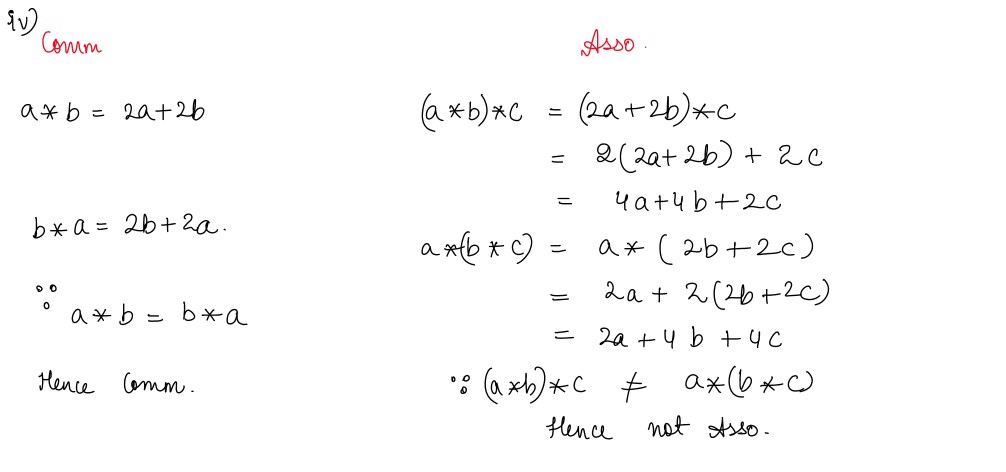 iv)
Comm
a * b = 2a+2b
b * a = 2b+2a.
∵ a * b = b * a
Hence Comm.
Asso.
(a * b) * c = (2a+2b) * c
= 2(2a+2b) + 2c
= 4a+4b+2c
a * (b * c) = a * (2b+2c)
= 2a + 2(2b+2c)
= 2a+4b+4c
∵ (a * b) * c ≠ a * (b * c)
Hence not Asso.